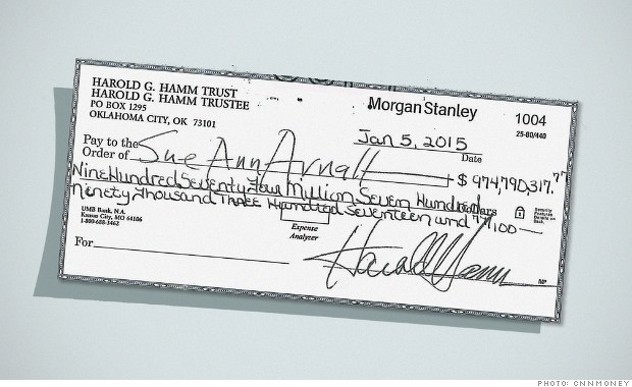 HAROLD G. HAMM TRUST
HAROLD G. HAMM TRUSTEE
PO BOX 1295
OKLAHOMA CITY, OK 73101
MorganStanley
1004
25-80/440
Jan 5, 2015
Date
Pay to the
Order of Sue Ann Arnall $ 974,790,317.77
Nine Hundred Seventy Four Million Seven Hundred
Dollars
Security Features Details on Back.
Ninety Thousand Three Hundred Seventeen and 77/100
UMB Bank, N.A.
Kansas City, MO 64106
1-800-688-3462
Expense
Analyzer
For
Harold Hamm
MP
PHOTO: CNNMONEY